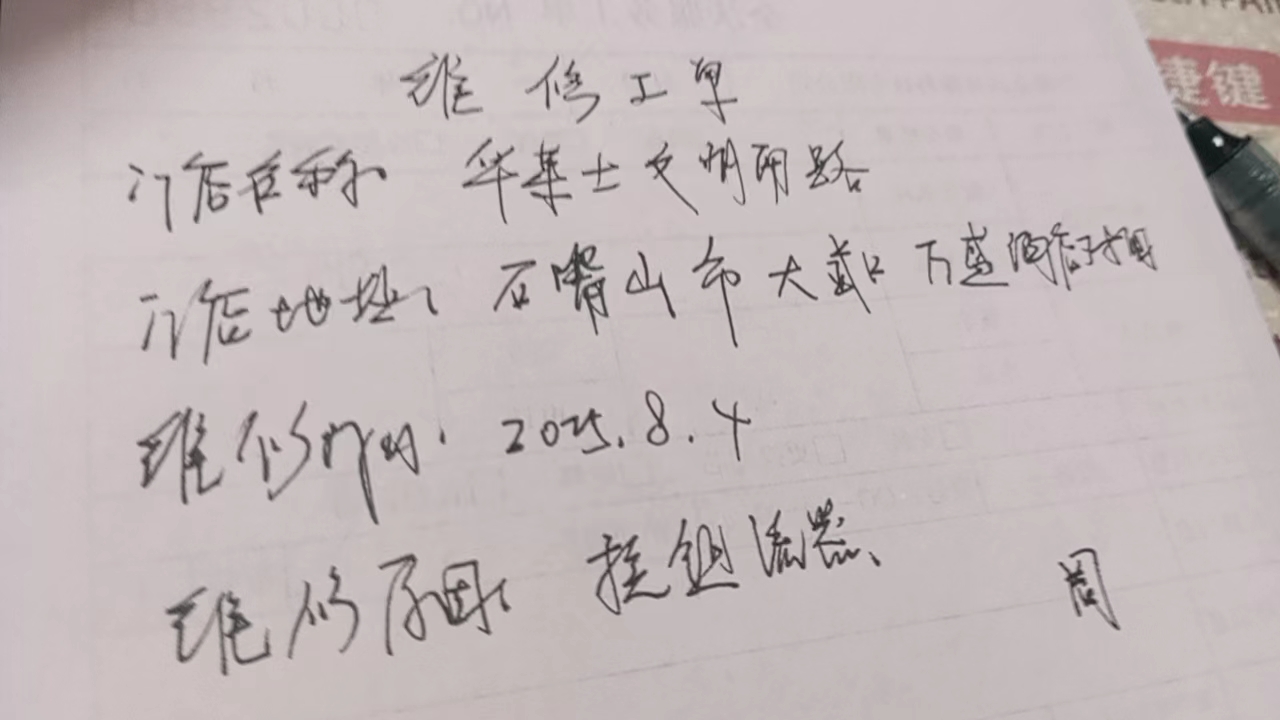 维修工单
捷键
门店名称 华莱士文明南路
门店地址、石嘴山市大武口万盛酒店对面
维修时间. 2025.8.4
维修原因: 换镇流器、
周